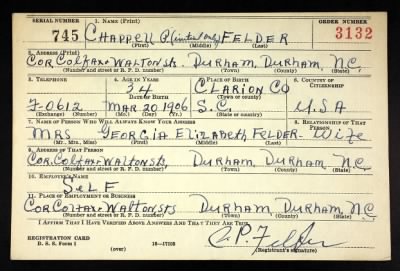 SERIAL NUMBER 1. NAME (Print) ORDER NUMBER
745 CHAPPELL P (initial only) FELDER 3132
(First) (Middle) (Last)
2. ADDRESS (Print)
COR. COLFAX & WALTON STS. DURHAM, DURHAM, N.C.
(Number and street or R. F. D. number) (Town) (County) (State)
3. TELEPHONE 4. AGE IN YEARS 5. PLACE OF BIRTH 6. COUNTRY OF CITIZENSHIP
34 CLARION CO
J-0612 MAR 20 1906 S.C. U.S.A
7. NAME OF PERSON WHO WILL ALWAYS KNOW YOUR ADDRESS 8. RELATIONSHIP OF THAT PERSON
MRS GEORGIA ELIZABETH FELDER - WIFE
(Mr., Mrs., Miss) (First) (Middle) (Last)
9. ADDRESS OF THAT PERSON
COR. COLFAX & WALTON STS. DURHAM DURHAM N.C.
(Number and street or R. F. D. number) (Town) (County) (State)
10. EMPLOYER'S NAME
SELF
11. PLACE OF EMPLOYMENT OR BUSINESS
COR COLFAX & WALTON STS DURHAM DURHAM N.C.
(Number and street or R. F. D. number) (Town) (County) (State)
I AFFIRM THAT I HAVE VERIFIED ABOVE ANSWERS AND THAT THEY ARE TRUE.
REGISTRATION CARD C. P. Felder
D. S. S. Form 1 (over) 16—17105 (Registrant's signature)